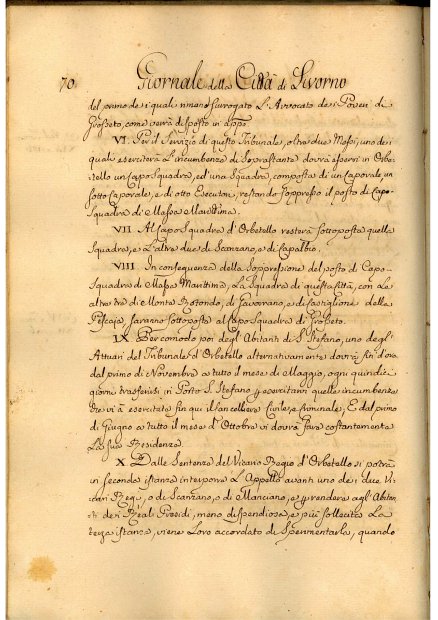 70 Giornale della Città di Livorno
del primo de i quali rimane surrogato L'Avvocato de i Poveri di
Grosseto, come verrà disposto in appo
VI. Per il Servizio di questo Tribunale, oltre due Messi, uno dei
quali eserciterà L'incumbenza di Soprastante dovrà esservi in Orbe-
tello un Capo Squadra, ed una Squadra, composta di un Caporale un
Sotto Caporale, e di otto Esecutori, restando soppresso il posto di Capo-
Squadra di Massa Marittima.
VII. Al Capo Squadra d'Orbetello resterà sottoposta quella
Squadra, e L'altre due di Scanzano, e di Capalbio.
VIII. In consequenza della Soppressione del posto di Capo-
Squadra di Massa Marittima, La Squadra di questa Città, con Le
altre tre di Monte Rotondo, di Gavorrano, e di Castiglione della
Pescaja, saranno sottoposte al Capo Squadra di Grosseto.
IX. Per comodo poi degl'Abitanti di S. Stefano, uno degl'
Attuari del Tribunale d'Orbetello alternativamente dovrà fin d'ora
dal primo di Novembre a tutto il mese di Maggio, ogni quindici
giorni trasferirsi in Porto S. Stefano p esercitarvi quelle incumbenze
che vi à esercitate fin qui il Cancelliere Civile, e Criminale, E dal primo
di Giugno a tutto il mese d'Ottobre vi dovrà fare costantemente
La sua Residenza.
X. Dalle Sentenze del Vicario Regio d'Orbetello si potrà
in seconda istanza interporre L'Appello avanti uno de i due Vi-
cari Regj, o di Scanzano, o di Manciano, e p rendere agl'Abitan-
ti de i Reali Presidi, meno dispendiosa, e più sollecita La
terza istanza, viene Loro accordato di Sperimentarla, quando